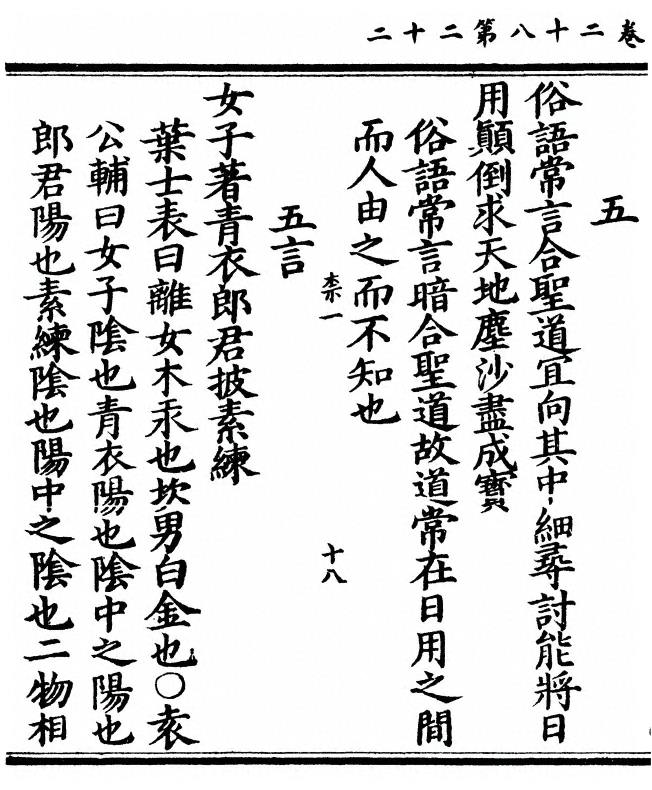 卷二十八第二十二
五
俗語常言合聖道冝向其中細尋討能將日
用顛倒求天地塵沙盡成寳
俗語常言暗合聖道故道常在日用之間
而人由之而不知也
柰一 十八
五言
女子著青衣郎君披素練
葉士表曰離女木汞也坎男白金也○袁
公輔曰女子陰也青衣陽也陰中之陽也
郎君陽也素練陰也陽中之陰也二物相